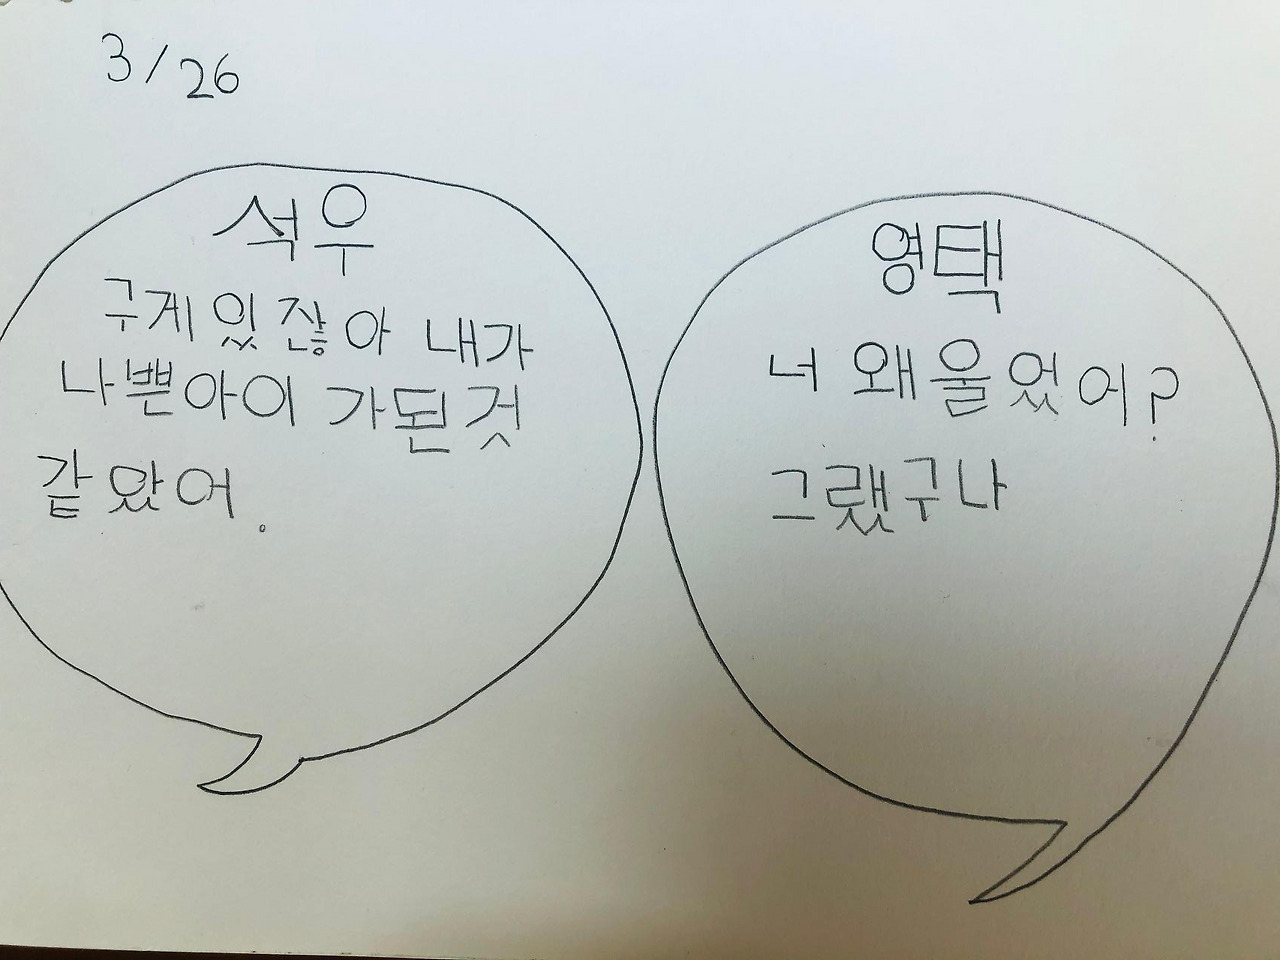 3/26
석우
구게 있잖아 내가
나쁜아이 가된것
같았어.
영택
너 왜울었어?
그랬구나